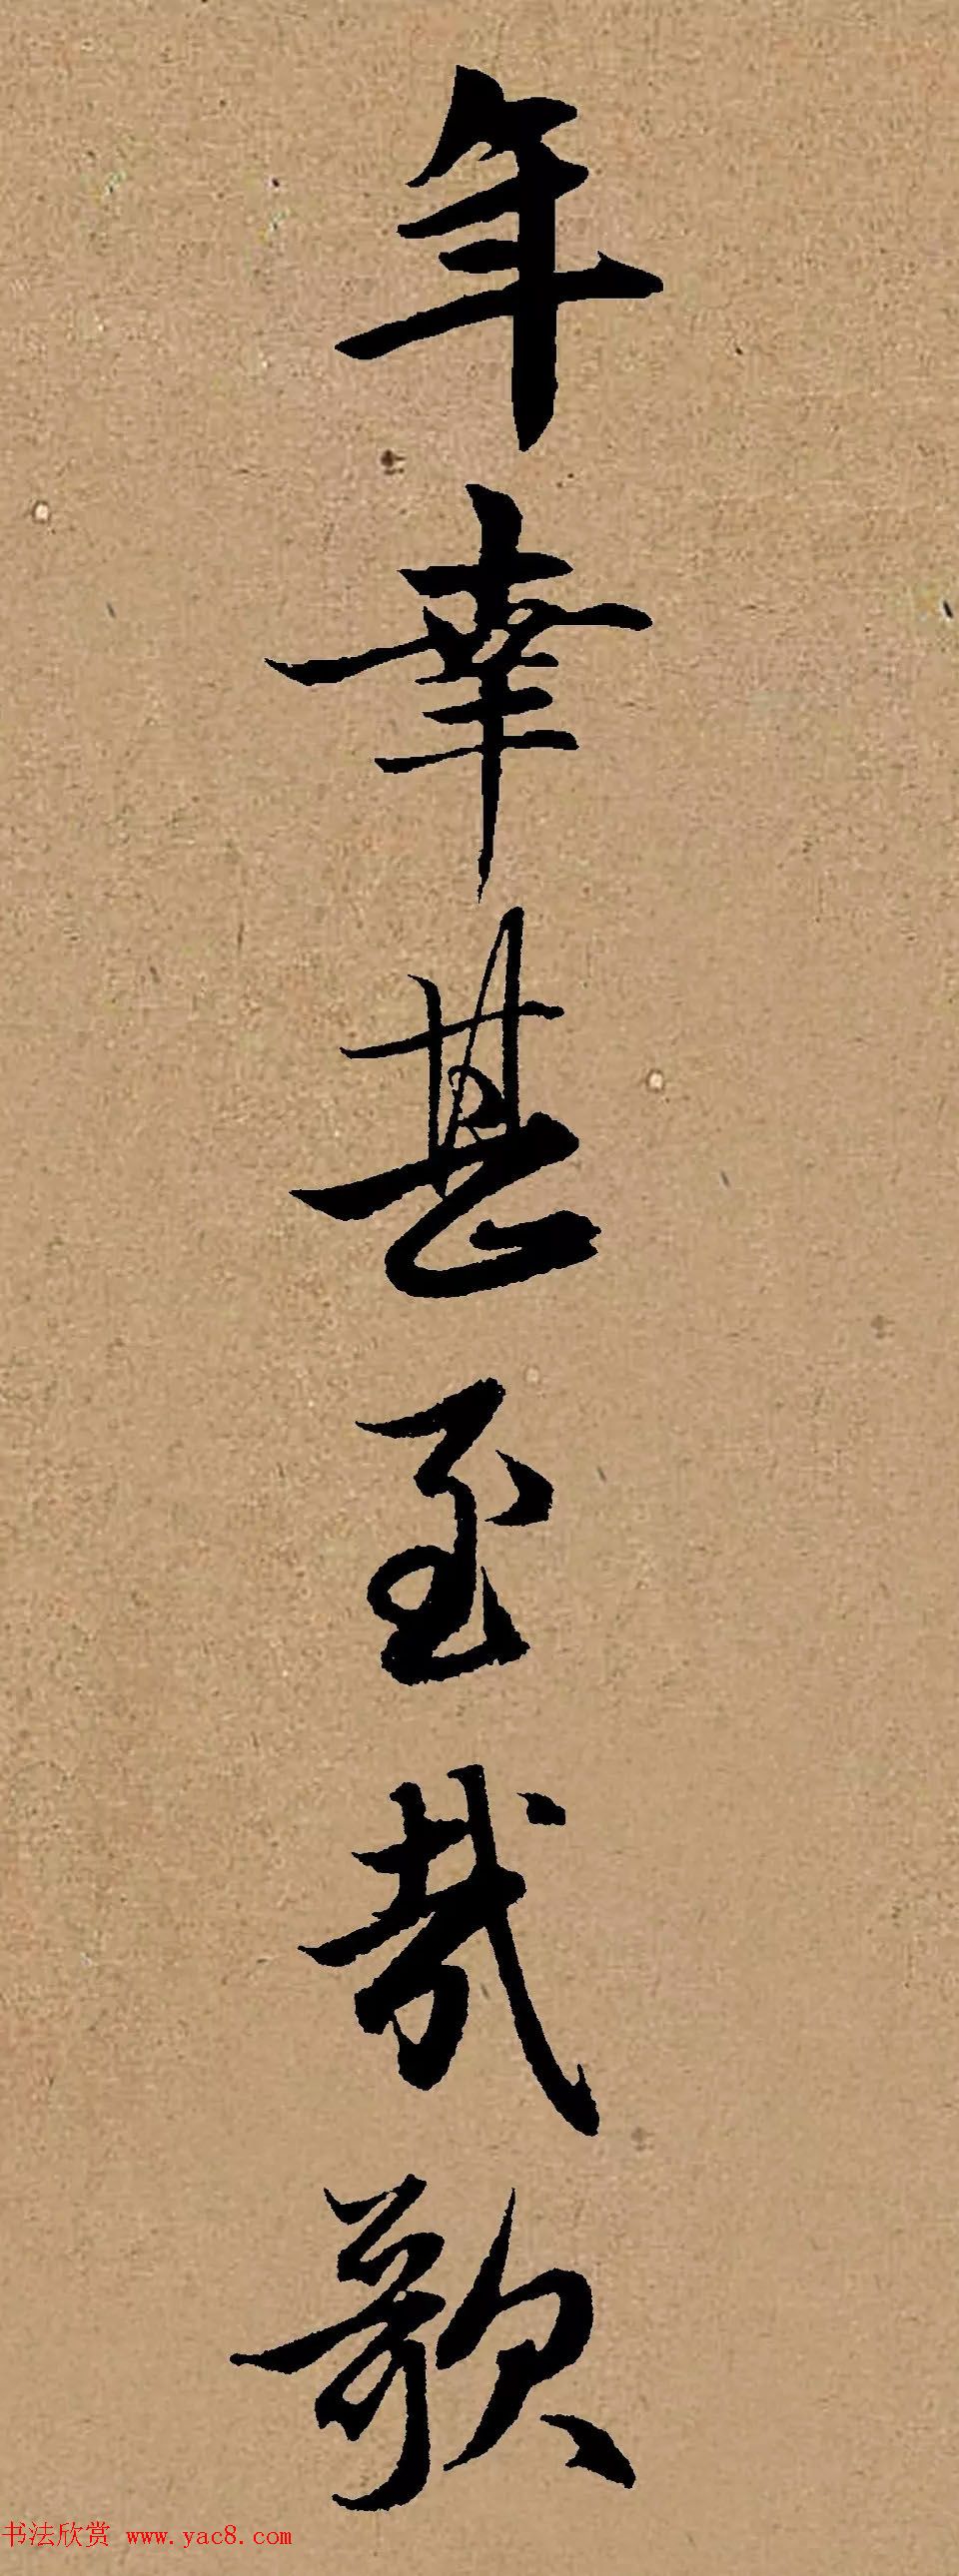 年幸甚至哉歌
书法欣赏 www.yac8.com